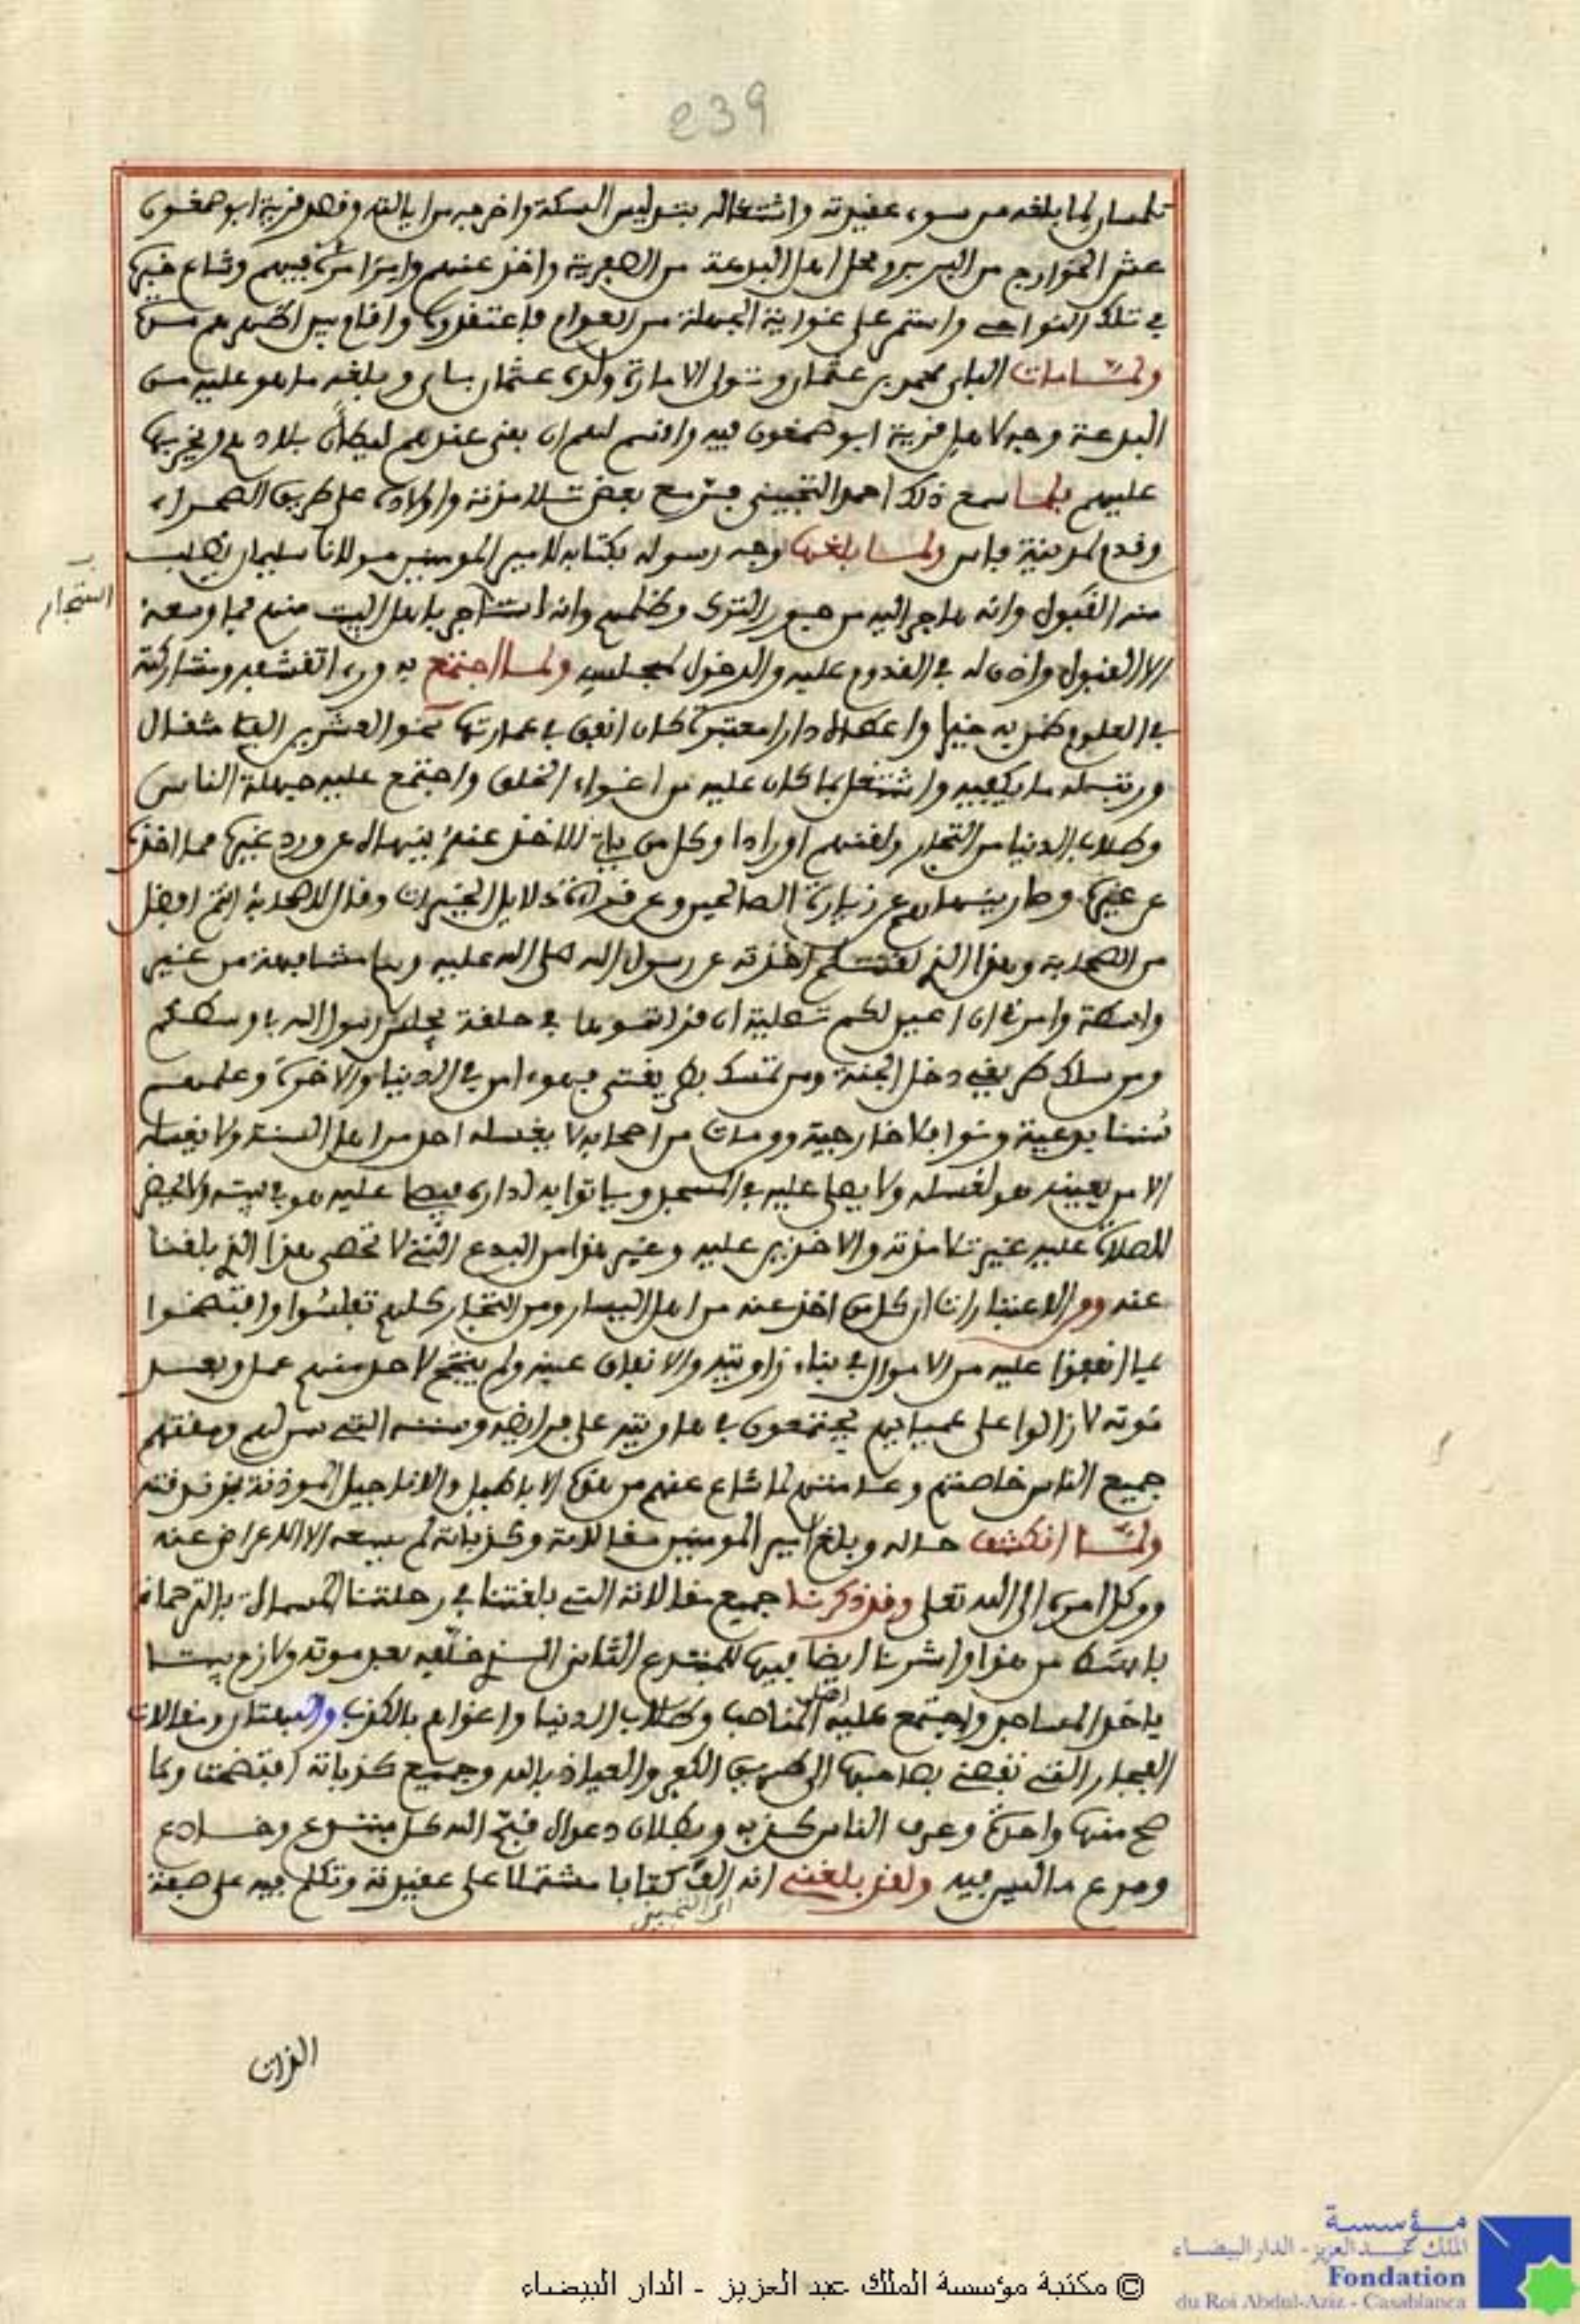 239
تلمسان لما بلغه من سوء عقيدته واشتغاله بتدليس السكة واخرجه من ايالته وقصد قرية ابو صمغون
عش الخوارج من البربر ومحل اهل البدعة من الصفرية واخذ عنهم وابتدا من فيهم وشاع خبرها
في تلك النواحي واستمر على غواية الجهلة من العوام فاعتقدوه واقام بين اظهرهم
ولما مات الباي محمد بن عثمان وتولى الامارة ولده عثمان باي وبلغه ما هو عليه من
البدعة وجه لاهل قرية ابو صمغون فيه واقسم لهم ان بقى عندهم ليطان بلادهم ويخربها
عليهم فلما سمع ذلك احمد التجيني فر مع بعض تلامذته واولاده على طريق الصحراء
وقدم لمدينة فاس ولما بلغها وجه رسوله بكتابه لامير المومنين مولانا سليمان يطلب
استجار
منه القبول وانه هاجر اليه من جور الترك وظلمهم وانه استاجر باهل البيت منهم فما وسعه
الا القبول واذن له في القدوم عليه والدخول لمجلسه ولما اجتمع به وراى تقشفه ومشاركته
في العلوم وظن به خيرا واعطاه دارا معتبرة كان انفق في عمارتها نحو العشرين الف مثقال
ورتب له ما يكفيه واشتغل بما كان عليه من اغواء الخلق واجتمع عليه جهلة الناس
وطلاب الدنيا من التجار ولقنهم اورادا وكل من ياتي للاخذ عنه ينهاه عن ورد غيره مما اخذه
عن غيره وصار ينهاهم عن زيارة الصالحين وعن قراءة دلايل الخيرات وقال لاصحابه انتم افضل
من الصحابة وهذا الذي لقنتكم اخذته عن رسول الله صلى الله عليه وسلم مشافهة من غير
واسطة وامرني ان اعين لكم تصلية ان قراتموها في حلقة يجلس رسول الله بوسطكم
ومن سلك طريقي دخل الجنة ومن تمسك بطريقتي فهو امن في الدنيا والاخرة وعلمهم
سننا بدعية ونوافل خارجية ومن مات من اصحابه لا يغسله احد من اهل السنة ولا يغسله
الا من يعينه هو لغسله ولا يصلى عليه في المسجد وياتوا به لداره فيصلي عليه هو في بيته ولا يحضر
للصلاة عليه غير تلامذته والاخذين عليه وغير هذا من البدع التي لا تحصى هذا الذي بلغنا
عنه ومن الاعتبارات ان كل من اخذ عنه من اهل اليسار ومن التجار كلهم تفلسوا وافتضحوا
فيما انفقوا عليه من الاموال في بناء زاويته والانفاق عينه ولم ينتج لاحد منهم عمل وبعد
موته لا زالوا على عميانهم يجتمعون في زاويته على فرايضه وسننه التي سن لهم ومقتهم
جميع الناس خاصتهم وعامتهم لما شاع عنهم من هذه الاباطيل والاقاويل الموذنة بزندقته
ولما انكشف حاله وبلغ امير المومنين مقالاته وكذباته لم يسعه الا الاعراض عنه
ووكل امره الى الله تعلى وقد ذكرنا جميع مقالاته التي بلغتنا في رحلتنا المسماة بالترجمانة
بابسط من هذا واشرنا ايضا فيها للمبتدع الثاني الذي خلفه بعد موته ولازم بيته
ياخذ المساجد واجتمع عليه اهل المناصب وطلاب الدنيا واغواهم بالكذب والبهتان ومقالات
الفجار التي تفضي بصاحبها الى صريح الكفر والعياذ بالله وجميع كذباته افتضحت وما
صح منها واحدة وعرف الناس كذبه وبطلان دعواه قبح الله كل مبتدع وخادع
ومدع ما ليس فيه ولقد بلغني انه الف كتابا مشتملا على عقيدته وتكلم فيه على صفة
الذات
© مكتبة مؤسسة الملك عبد العزيز - الدار البيضاء
مؤسسة
الملك عبد العزيز - الدار البيضاء
Fondation
du Roi Abdul-Aziz - Casablanca